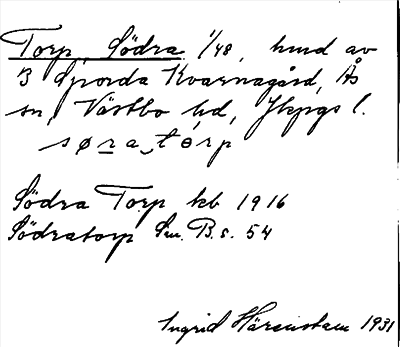 Torp, Södra 1/48, hmd av
3 Sporda Kvarnagård, Ås
sn, Västbo hd, Jkpgs l.
søra‿tórp
Södra Torp kb 1916
Södratorp Sm. B. s. 54
Ingrid Härenstam 1931